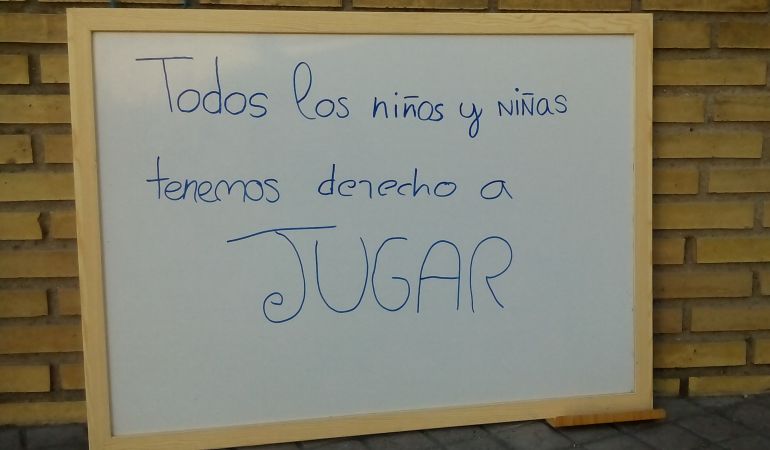 Todos los niños y NiÑas
tenemos derecho a
JUGAR